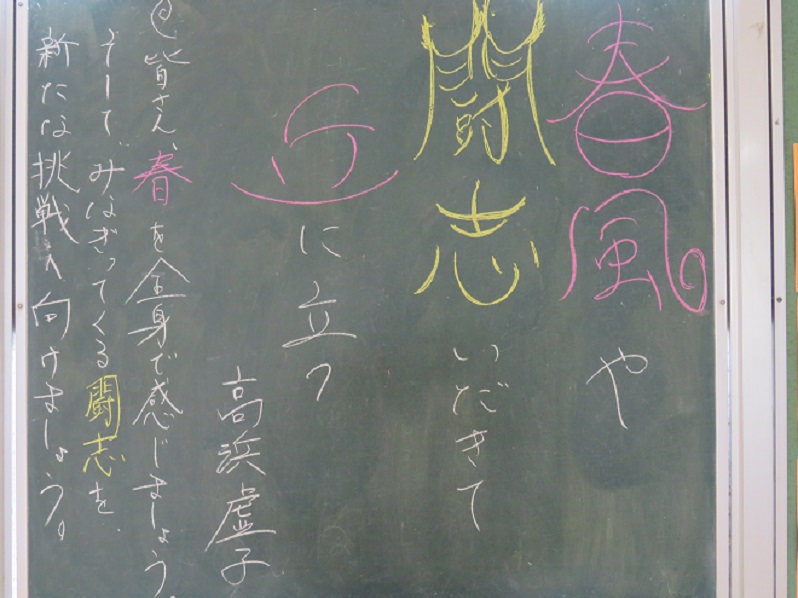 春風や
闘志いだきて
丘に立つ
高浜虚子
皆さん、春を全身で感じましょう。
そして、みなぎってくる闘志を、
新たな挑戦へ向けましょう。